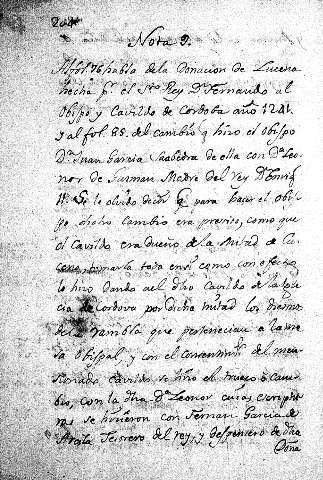 Nota 9.
Al fol. 76 habla de la Donacion de Lucena
hecha pr. el Sto. Rey Dn. Fernando al
Obispo y Cavildo de Cordoba año 1241.
y al fol. 88. del cambio q hizo el Obispo
Dn. Juan Garcia Saabedra de ella con Da. Leo-
nor de Guzman Madre del rey Dn. Enriq
II. Se le olvido decir q para hacer el Obis-
po dicho cambio era preciso, como que
el Cavildo era dueño de la mitad de Lu-
cena, tomarla toda en si como con efecto
lo hizo dando al dho Cavildo de la Igle-
cia de Cordova por dicha mitad los Diezmos
de la Rambla que pertenecian a la me-
sa Obispal, y con el consentimto. del men-
sionado Cavildo se hizo el trueq o cam-
bio, con la dha. Da. Leonor cuias escriptu-
ras se hicieron con Fernan Garcia de
Tesorero del rey, y despensero de dha
Doña